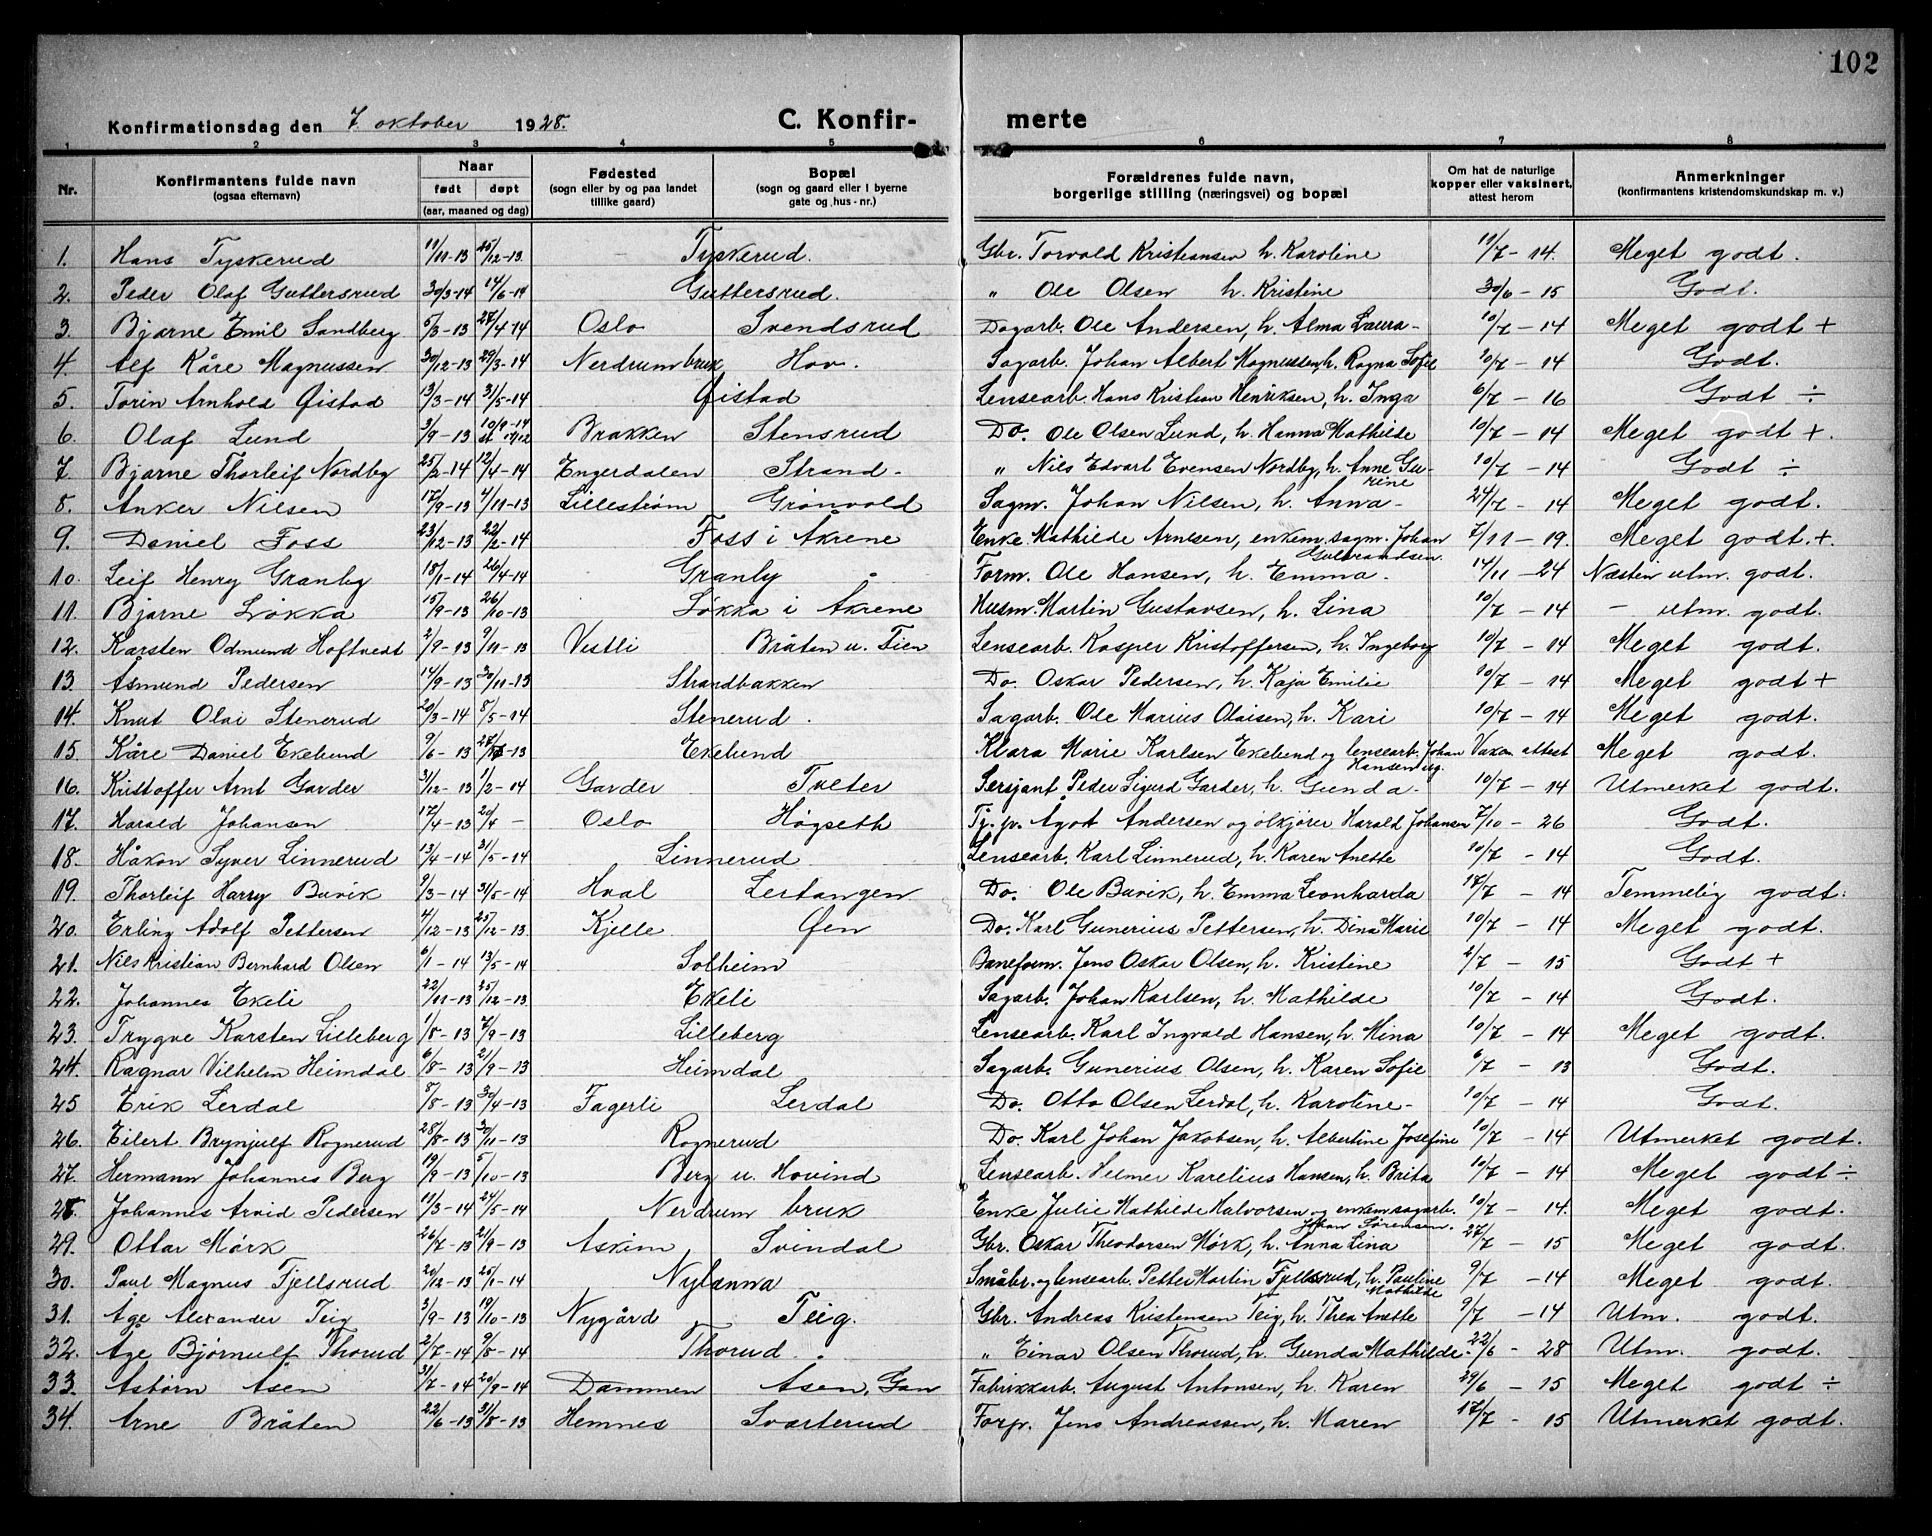 102
Konfirmationsdag den 7. oktober 1928. C. Konfir- merte
1 2 3 4 5 6 7 8
Nr. Konfirmantens fulde navn (ogsaa efternavn) Naar født døpt (aar, maaned og dag) Fødested (sogn eller by og paa landet tillike gaard) Bopæl (sogn og gaard eller i byerne gate og hus-nr.) Forældrenes fulde navn, borgerlige stilling (næringsvei) og bopæl Om hat de naturlige kopper eller vaksinert, attest herom Anmerkninger (konfirmantens kristendomskundskap m. v.)
1. Hans Tyskerud 11/11-13 25/12-13 Tyskerud. Gbr. Torvald Kristiansen h. Karoline 10/7-14. Meget godt.
2. Peder Olaf Guttersrud 30/3-14 14/6-14 Guttersrud. " Ole Olsen h. Kristine 30/6-15 Godt.
3. Bjarne Emil Sandberg 5/3-13 27/4-14 Oslo Svendsrud Dagarb. Ole Andersen, h. Alma Laura- 10/7-14 Meget godt +
4. Alf Kåre Magnussen 30/12-13 29/3-14 Nerdrum bruk Hov. Sagarb. Johan Albert Magnussen, h. Ragna Sofie 10/7-14 Godt.
5. Torin Arnhold Øistad 13/3-14 31/5-14 Øistad Lensearb. Hans Kristian Henriksen, h. Inga 6/7-16 Godt ÷
6. Olaf Lund 3/9-13 10/9-14 Brakken Stensrud Do. Ole Olsen Lund, h. Hanna Mathilde 10/7-14 Meget godt +.
7. Bjarne Thorleif Nordby 25/2-14 12/4-14 Engerdalen Strand- " Nils Edvart Evensen Nordby, h. Anne Gurine 10/7-14 Godt ÷
8. Anker Nilsen 17/9-13 4/11-13 Lillestrøm Grønvold Sagm. Johan Nilsen, h. Anna- 24/7-14 Meget godt.
9. Daniel Foss 23/12-13 22/2-14 Foss i Åkrene Enke Mathilde Arnesen, enkem. sagm. Johan Gulbrandsen. 7/11-19. Meget godt.+.
10. Leif Henry Granby 18/1-14 26/4-14 Granly Form. Ole Hansen, h. Emma- 14/11-24 Næsten utm. godt.
11. Bjarne Løkka 15/9-13 26/10-13 Løkka i Åkrene Husm. Martin Gustavsen, h. Lina 10/7-14 - utm. godt.
12. Karsten Odmund Hoftvedt 2/9-13 9/11-13 Vestli Bråten u. Tien Lensearb. Kasper Kristoffersen, h. Ingeborg 10/7-14 Meget godt.
13. Åsmund Pedersen 14/9-13 30/11-13 Strandbakken Do. Oskar Pedersen, h. Kaja Emilie 10/7-14 Meget godt +
14. Knut Olai Stenerud 20/3-14 8/5-14 Stenerud. Sagarb. Ole Marius Olaisen, h. Kari 10/7-14 Meget godt.
15. Kåre Daniel Ekelund 9/6-13 Ekelund Klara Marie Karlsen Ekelund og lensearb. Johan Hansen ug. Vaxn. attest Meget godt.
16. Kristoffer Arnt Garder 3/12-13 1/2-14 Garder Tveter Sersjant Peder Sigurd Garder, h. Gunda- 10/7-14 Utmerket godt.
17. Harald Johansen 17/4-13 20/4 - Oslo Høgseth Tj. p. Ågot Andersen og ølkjører Harald Johansen 7/10-26 Godt.
18. Håkon Syver Linnerud 13/4-14 31/5-14 Linnerud Lensearb. Karl Linnerud, h. Karen Anette 10/7-14 Godt.
19. Thorleif Harry Buvik 9/3-14 31/5-14 Hval Lertangen Do. Ole Buvik, h. Emma Leonharda 17/7-14 Temmelig godt.
20. Erling Adolf Pettersen 4/12-13 25/12-13 Kjelle Øen Do. Karl Gunerius Pettersen, h. Dina Marie 10/7-14 Meget godt.
21. Nils Kristian Bernhard Olsen 6/1-14 13/5-14 Solheim Baneform. Jens Oskar Olsen, h. Kristine 2/7-15 Godt +
22. Johannes Ekeli 22/11-13 25/12-13 Ekeli Sagarb. Johan Karlsen, h. Mathilde 10/7-14 Godt.
23. Trygve Karsten Lilleberg 1/8-13 7/9-13 Lilleberg Lensearb. Karl Ingvald Hansen, h. Mina 10/7-14 Meget godt.
24. Ragnar Vilhelm Heimdal 6/8-13 21/9-13 Heimdal Sagarb. Gunerius Olsen, h. Karen Sofie 6/7-13 Godt.
25 Erik Lerdal 8/8-13 30/4-13 Fagerli Lerdal Do. Otto Olsen Lerdal, h. Karoline- 10/7-14 Godt.
26. Eilert Brynjulf Rognerud 28/8-13 30/11-13 Rognerud Do. Karl Johan Jakobsen, h. Albertine Josefine 10/7-14 Utmerket godt.
27. Hermann Johannes Berg 19/9-13 5/10-13 Berg u. Hovind Lensearb. Helmer Karelius Hansen, h. Brita 10/7-14 Meget godt ÷
28. Johannes Arvid Pedersen 11/3-14 24/5-14 Nerdrum bruk Enke Julie Mathilde Halvorsen og enkem. sagarb. Johan Sørensen. 10/7-14. Meget godt.
29. Ottar Mørk 26/7-13 21/9-13 Askim Svindal Gbr. Oskar Theodorsen Mørk, h. Anna Lina 27/7-15 Meget godt.
30. Paul Magnus Fjellsrud 21/12-13 25/1-14 Nylanna Småbr. og lensearb. Petter Martin Fjellsrud, h. Pauline Mathilde 9/7-14 Meget godt.
31. Åge Alexander Teig 3/9-13 19/10-13 Nygård Teig. Gbr. Andreas Kristensen Teig, h. Thea Anette 9/7-14 Utm. godt.
32. Åge Bjørnulf Thorud 2/7-14 9/8-14 Thorud. " Einar Olsen Thorud, h. Gunda Mathilde- 22/6-28 Utm. godt.
33. Asbørn Åsen 31/7-14 20/9-14 Dammen Åsen, Gan Fabrikkarb. August Antonsen, h. Karen 29/6-15 Meget godt ÷
34. Arne Bråten 22/6-13 31/8-13 Hemnes Svarterud Forp. Jens Andreassen, h. Maren 17/7-15 Utmerket godt.